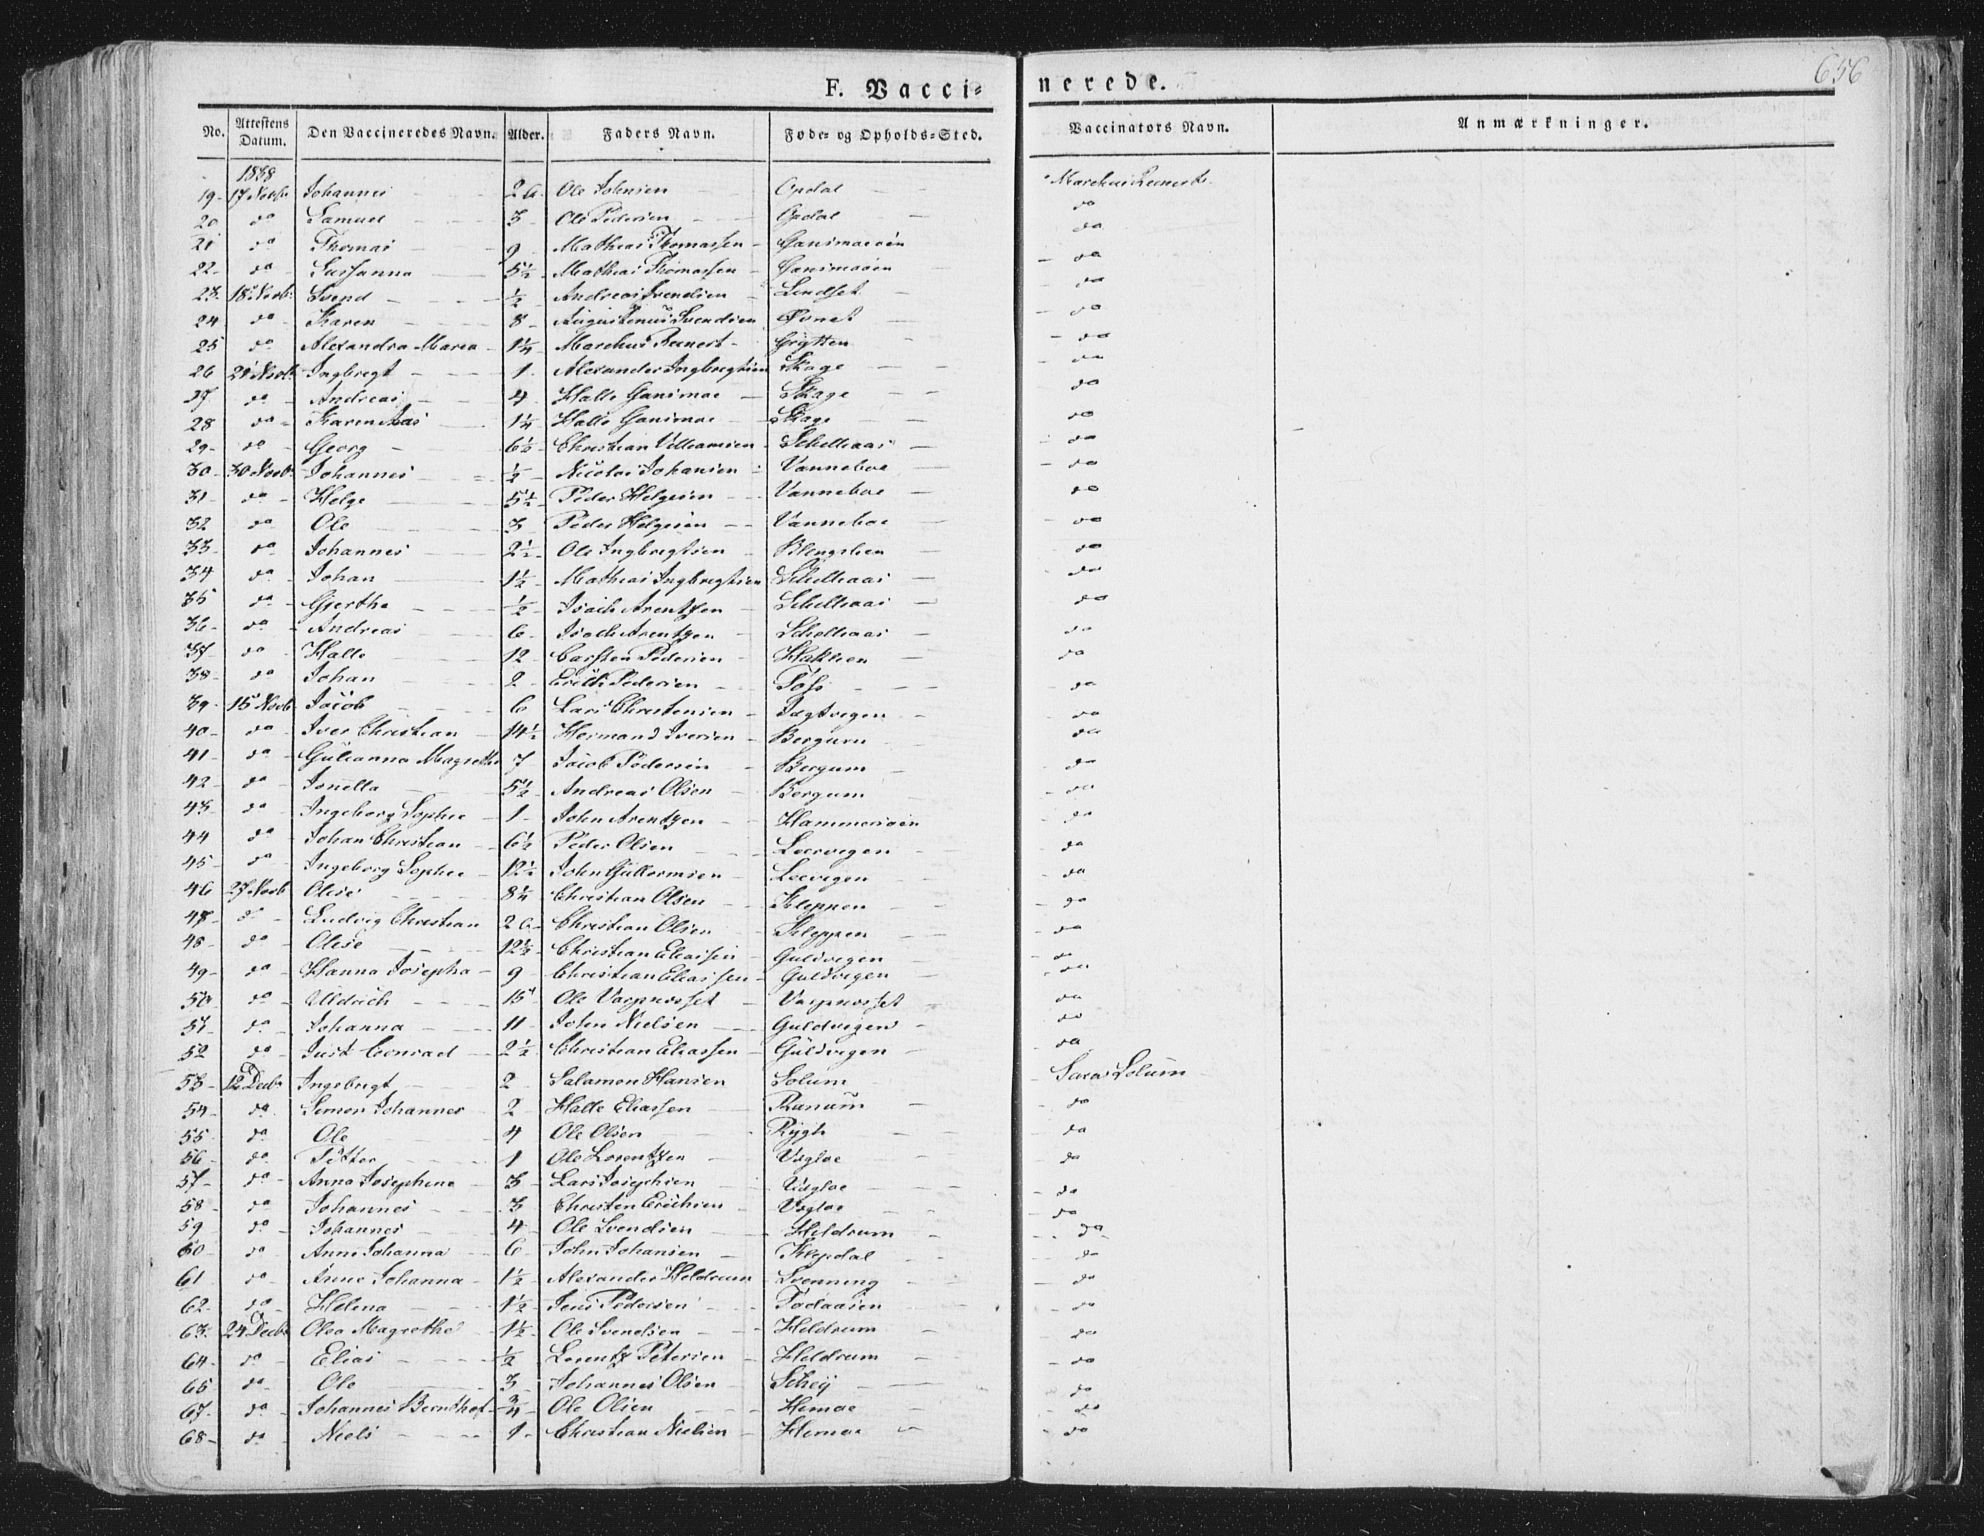 656
F. Vacci= nerede.
No. Attestens Datum. Den Vaccineredes Navn. Alder. Faders Navn. Føde= og Opholds=Sted. Vaccinators Navn. Anmærkninger.
1838
19- 17 Novbr Johannes 2 Ole Johnsen Opdal Marchus
20 do Samuel 3 Ole Pedersen Opdal do
21 do Thomas 9 Mathias Thomassen Gansmoeøen do
22 do Sussanna 5½ Mathias Thomassen Gansmoøen do
23 18 Novb Svend ½ Andreas Svendsen Lindset do
24 do Karen 8 Augustenus Svendsen Øvnet do
25 do Alexandra Maria 1¼ Marchus Reinert Grytten do
26 21 Novb Ingbregt 1 Alexander Ingbregtsen Skage do
27 do Andreas 4 Halle Gansmoe Skage do
28 do Karen 1¼ Halle Gansmoe Skage do
29 do Georg 6½ Christian Villiamsen Schelhaas do
30 30 Novb Johannes ½ Nicolai Johansen Vanneboe do
31 do Helge 5½ Peder Helgesen Vanneboe do
32 do Ole 3 Peder Helgesen Vanneboe do
33 do Johannes 2½ Ole Ingbregtsen Blengslien do
34 do Johan 1½ Mathias Ingbregtsen Schelhaas do
35 do Gjerthe ½ Isach Arentzen Schelhaas do
36 do Andreas 6 Isach Arentzen Schelhaas do
37 do Halle 12 Carsten Pedersen Haklien do
38 do Johan 2 Erich Pedersen do
39 15 Novb Jacob 6 Lars Christensen Jagtvegen do
40 do Iver Christian 14½ Hermand Iversen Bergum do
41 do Gulianna Magrethe 7 Jacob Pedersen Bergum do
42 do Jonetta 5½ Andreas Olsen Bergum do
43 do Ingeborg Sophie 1 John Arentzen Hammersøen do
44 do Johan Christian 6½ Peder Olsen Loervegen do
45 do Ingeborg Sophie 12½ John Guttormsen Loevegen do
46 27 Novb Olise 8¼ Christian Olsen Kleppen do
47 do Ludvig Christian 2 Christian Olsen Kleppen do
48 do Olise 12½ Christian Eliassen Guldvegen do
49 do Hanna Josepha 9 Christian Eliassen Guldvegen do
50 do Uldrich 15 Ole Varpnesset Varpnesset do
51 do Johanna 11 John Nielsen Guldvegen do
52 do Just Conrad 2½ Christian Eliassen Guldvegen do
53 12 Decbr Ingebrigt 2 Salamon Hansen Solum Sara Solum
54 do Simon Johannes 2 Halle Eliassen Ranum do
55 do Ole 4 Ole Olsen Rygh do
56 do Petter 1 Ole Lorentzen Vagloe do
57 do Anna Josephine 3 Lars Josephsen Vagloe do
58 do Johannes 3 Christen Erichsen Vagloe do
59 do Johannes 4 Ole Svendsen Heldrum do
60 do Anne Johanna 6 John Johansen Klepdal do
61 do Anne Johanna 1½ Alexander Heldrum Svenning do
62 do Helena 1½ Jens Pedersen do
63 24 Decbr Olea Magrethe 1½ Ole Svendsen Heldrum do
64 do Elias ½ Lorentz Petersen Heldrum do
65 do Ole 3 Johannes Olsen Schey do
67 do Johannes Bernthof ¾ Ole Olsen Hemoe do
68 do Niels 1 Christian Nielsen Hemoe do